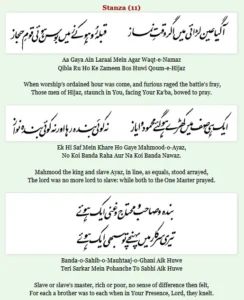 Stanza (11)
آگیا عین لڑائی میں اگر وقت نماز
قبلہ رو ہو کے زمیں بوس ہوئی قوم حجاز
Aa Gaya Ain Laraai Mein Agar Waqt-e-Namaz
Qibla Ru Ho Ke Zameen Bos Huwi Qoum-e-Hijaz
When worship's ordained hour was come, and furious raged the battle's fray,
Those men of Hijaz, staunch in You, facing Your Ka'ba, bowed to pray.
ایک ہی صف میں کھڑے ہو گئے محمود و ایاز
نہ کوئی بندہ رہا اور نہ کوئی بندہ نواز
Ek Hi Saf Mein Khare Ho Gaye Mahmood-o-Ayaz,
No Koi Banda Raha Aur Na Koi Banda Nawaz.
Mahmood the king and slave Ayaz, in line, as equals, stood arrayed,
The lord was no more lord to slave: while both to the One Master prayed.
بندہ و صاحب و محتاج و غنی ایک ہوئے
تیری سرکار میں پہنچے تو سبھی ایک ہوئے
Banda-o-Sahib-o-Mauhtaaj-o-Ghani Aik Huwe
Teri Sarkar Mein Pohanche To Sabhi Aik Huwe
Slave or slave's master, rich or poor, no sense of difference then felt,
For each a brother was to each when in Your Presence, Lord, they knelt.